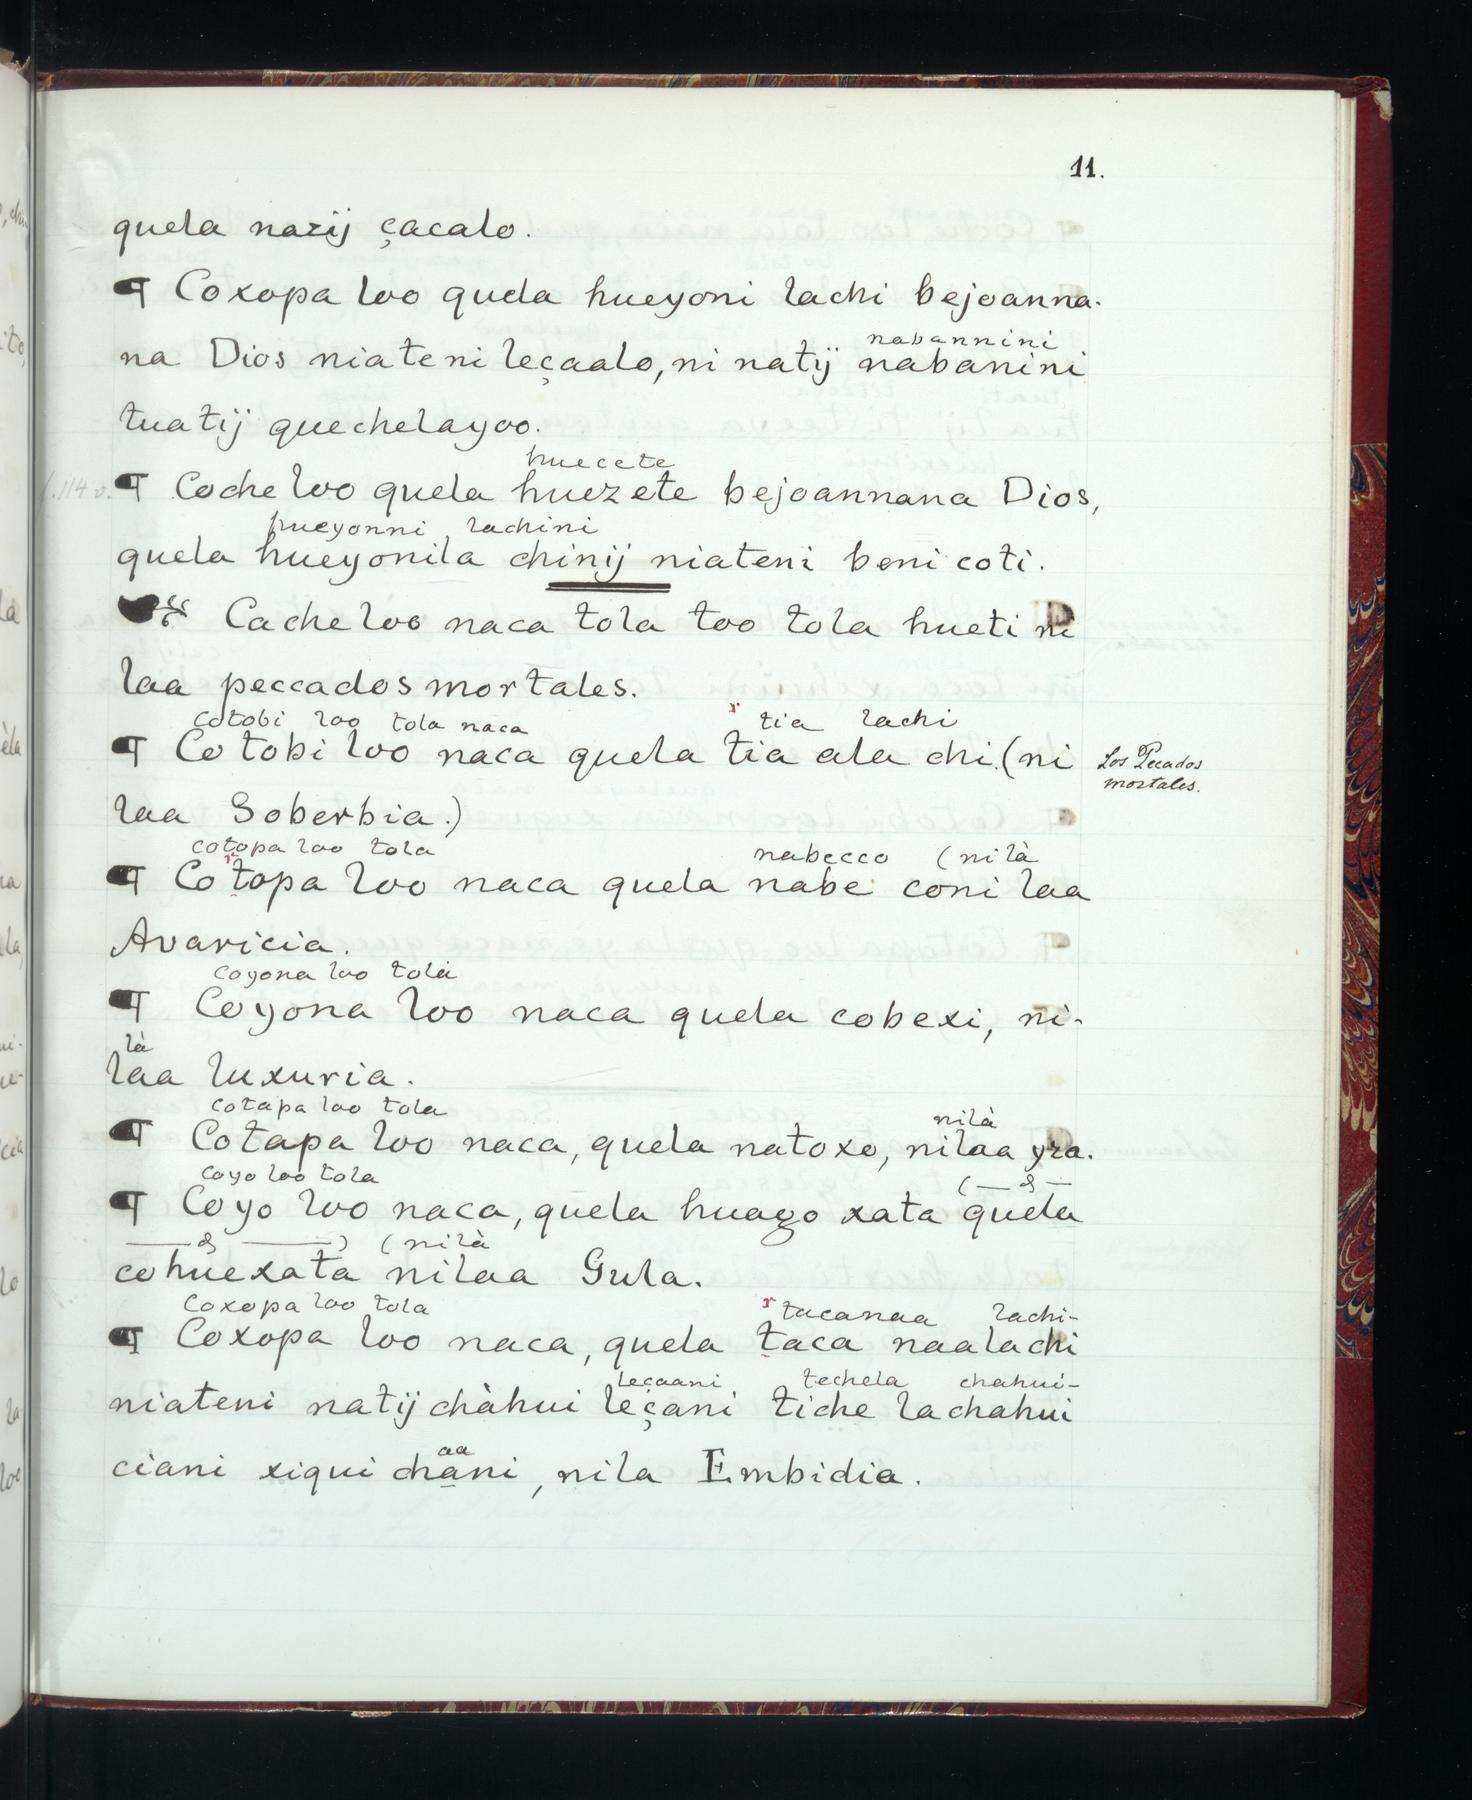 11.
quela nazij çacalo.
¶ Coxopa loo quela hueyoni lachi bejoanna-
nabannini
na Dios niateni leçaalo, ni natij nabanini
tuatij quechelayoo.
huecete
f. 114 v. ¶ Coche loo quela huezete bejoannana Dios,
hueyonni lachini
quela hueyonila chinij niateni beni coti.
Cache loo naca tola too tola hueti ni
laa peccados mortales.
cotobi loo tola naca r tia lachi
¶ Co tobi loo naca quela tia ala chi (ni
Los Pecados mortales.
laa Soberbia.)
cotopa loo tola nabecco (nilà
¶ Co topa loo naca quela nabe coni laa
Avaricia.
coyona loo tola
¶ Coyona loo naca quela cobexi, ni-
là
laa luxuria.
cotapa loo tola nilà
¶ Cotapa loo naca, quela natoxo, nilaa yra.
coyo loo tola
¶ Coyo loo naca, quela huago xata quela
(nilà
cohuexata nilaa Gula.
coxopa loo tola r tacanaa lachi-
¶ Coxopa loo naca, quela taca naalachi
leçaani techela chahui-
niateni natij chàhui leçani tiche lachahui
aa
ciani xiqui chani, nila Embidia.